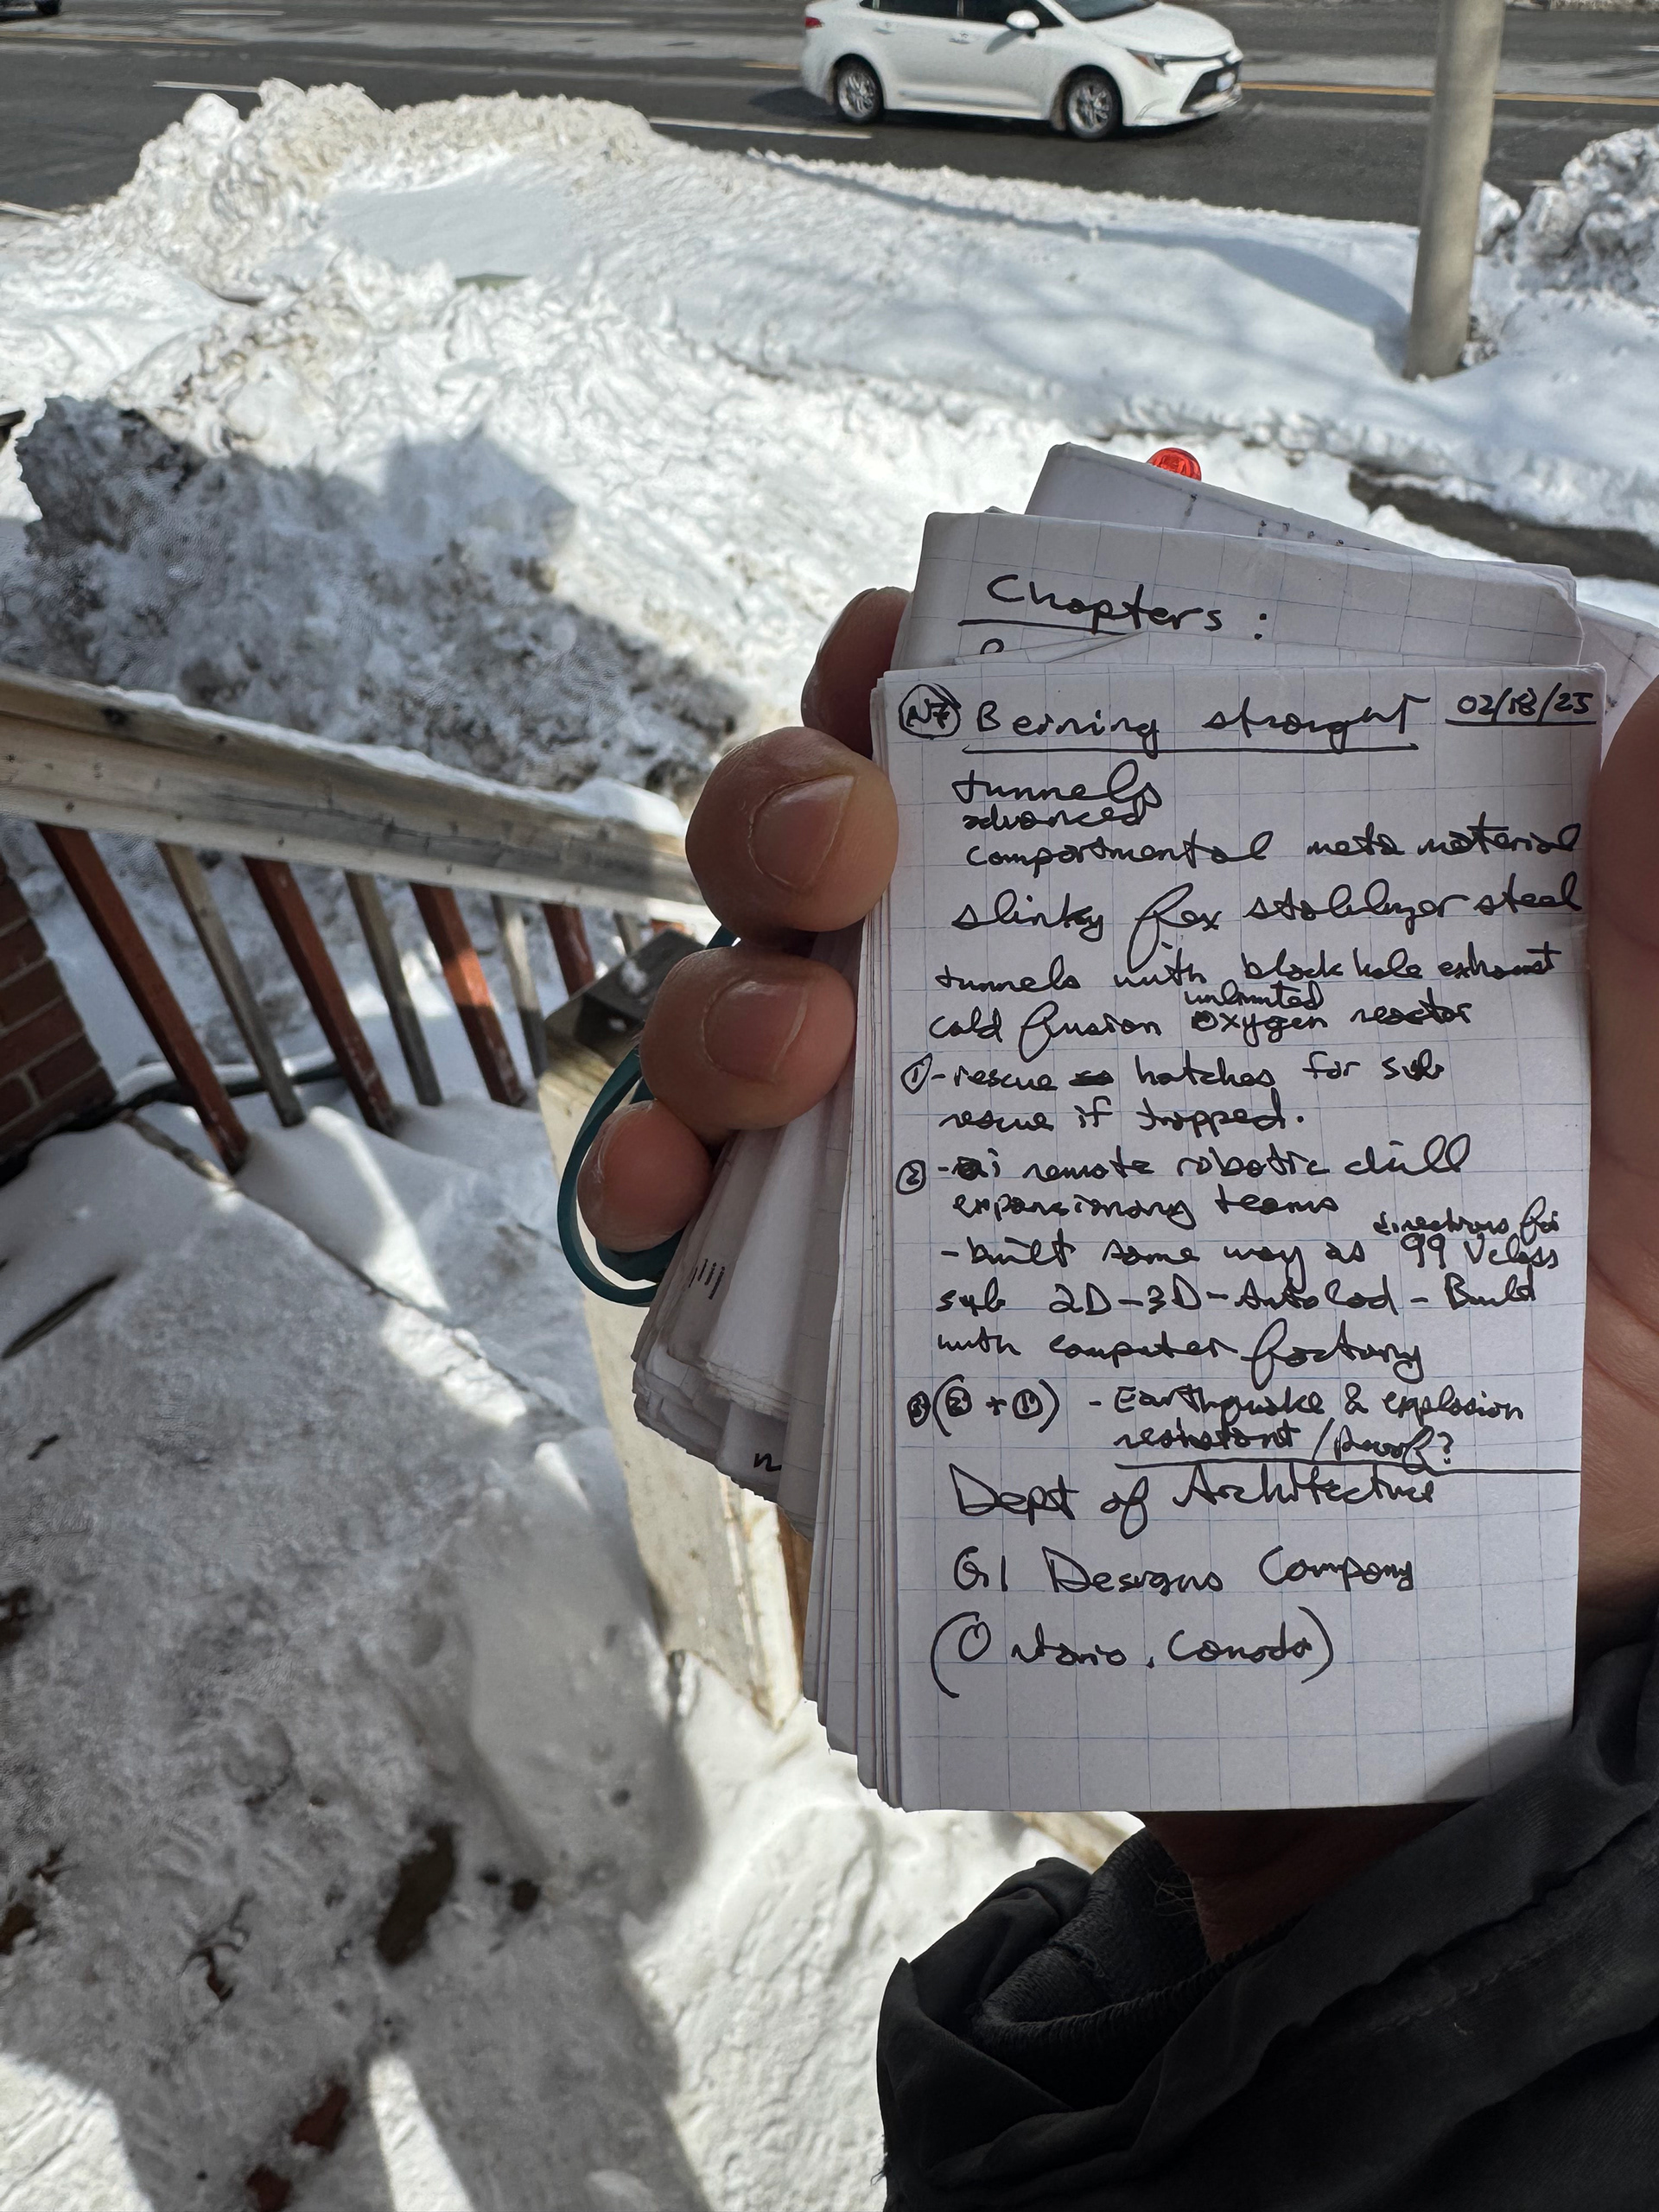 Chapters :
N7 Berning straight 02/18/25
tunnels
advanced
compartmental meta material
slinky flex stabilizer steel
tunnels with black hole exhaust
unlimited
cold fusion oxygen reactor
① - rescue hatches for sub
rescue if trapped.
② - ai remote robotic drill
expansionary teams
directions for
- built same way as 99 Vclass
sub 2D-3D-AutoCad - Build
with computer factory
③ (② + ①) - Earthquake & explosion
resistant / proof?
Dept of Architecture
G1 Designs Company
(Ontario, Canada)